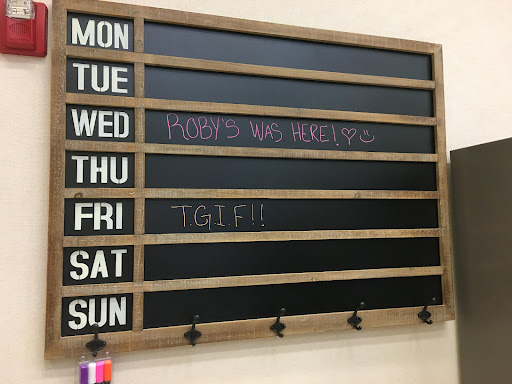 MON
TUE
WED ROBY'S WAS HERE! ♡ :)
THU
FRI T.G.I.F!!
SAT
SUN